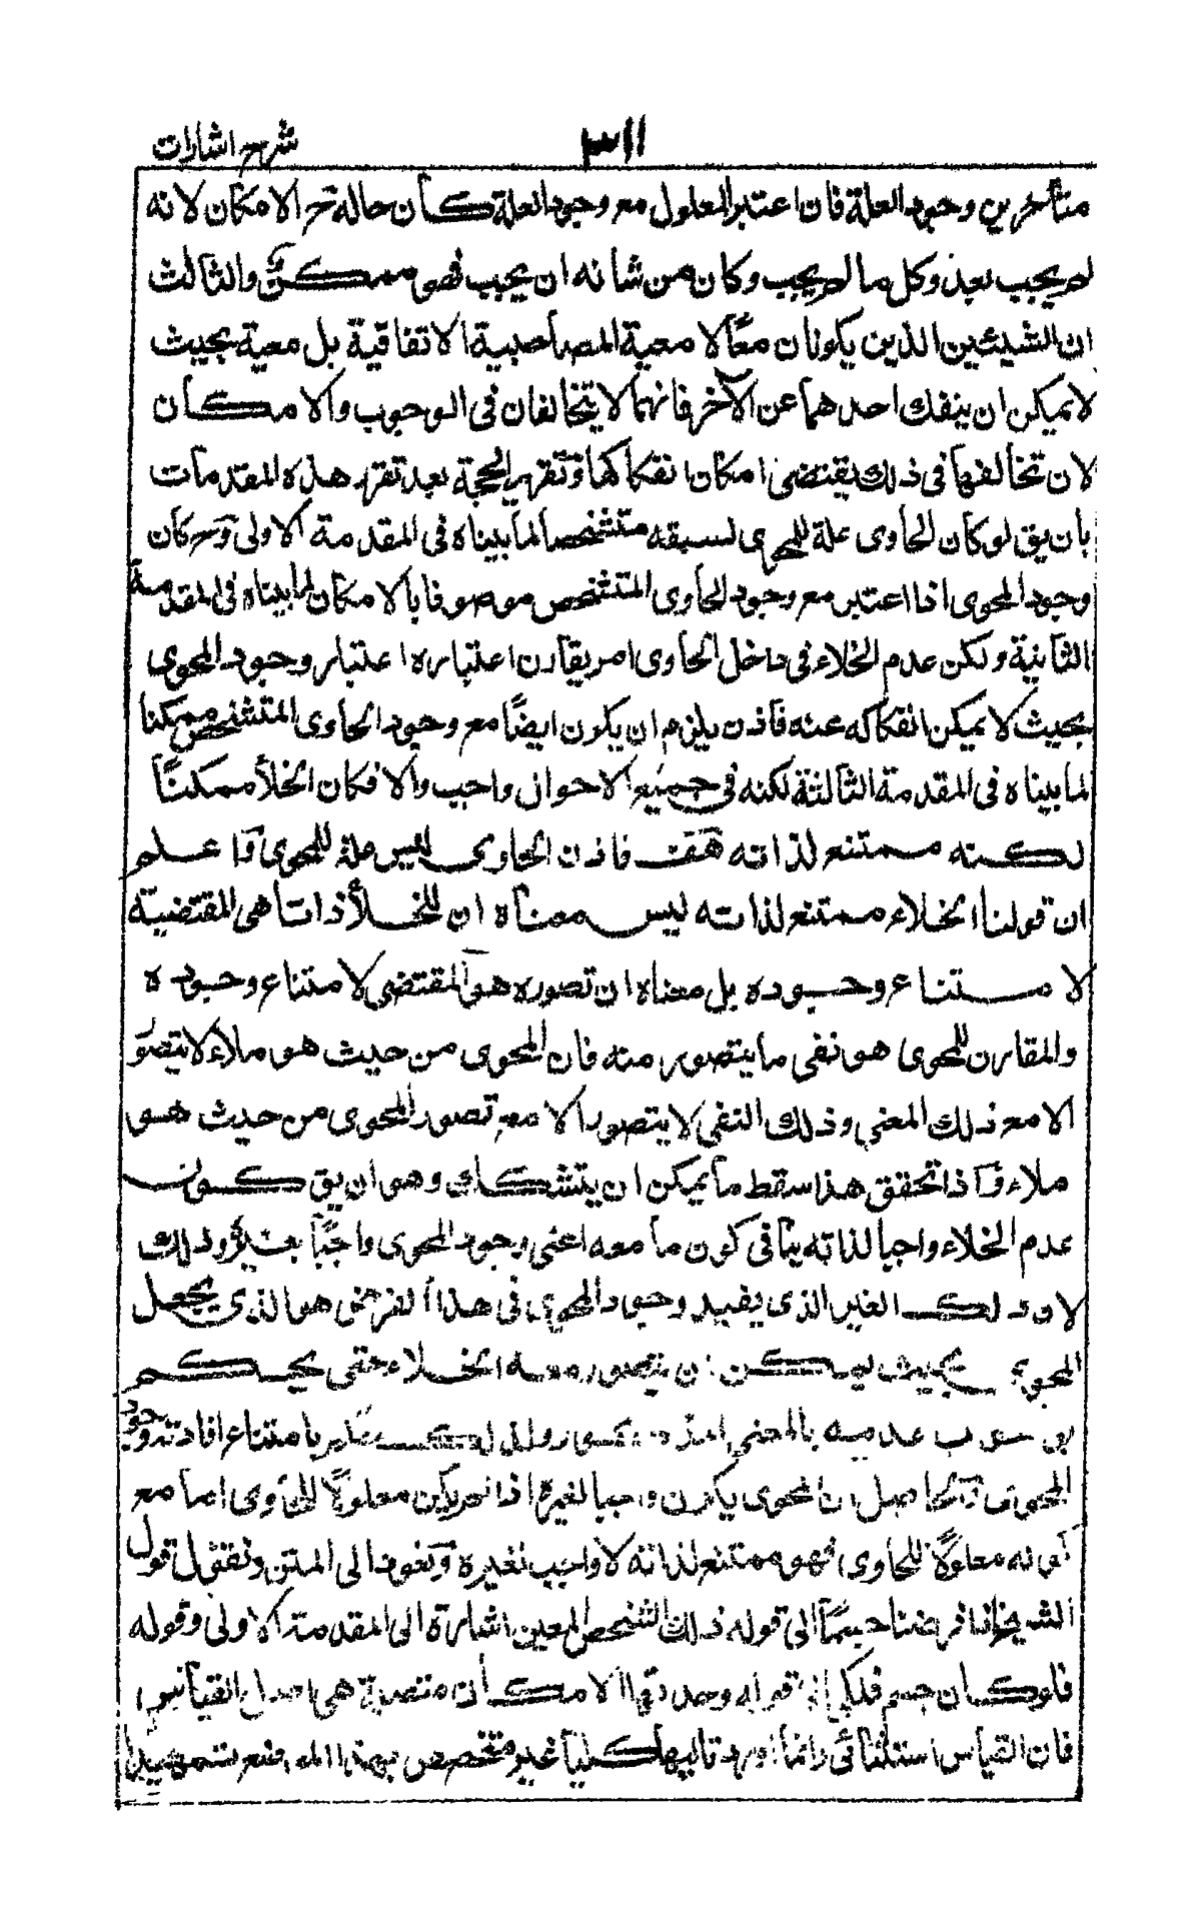 ٣١١ شرح اشارات
متأخر عن وجود العلة فان اعتبر المعلول مع وجود العلة كان حاله ح الامكان لانه
لم يجب بعد وكل ما لم يجب وكان من شانه ان يجب فهو ممكن والثالث
ان الشيئين الذين يكونان معًا لا معية المصاحبة الاتفاقية بل معية بحيث
لا يمكن ان ينفك احدهما عن الآخر فانهما لا يتخالفان فى الوجوب والامكان
لان تخالفهما فى ذلك يقتضى امكان انفكاكهما وتقرير الحجة بعد تقرر هذه المقدمات
بان يق لو كان الحاوى علة للمحوى لسبقه متشخصا لما بيناه فى المقدمة الاولى وح كان
وجود المحوى اذا اعتبر مع وجود الحاوى المتشخص موصوفا بالامكان لما بيناه فى المقدمة
الثانية ولكن عدم الخلاء فى داخل الحاوى امر يقارن اعتباره اعتبار وجود المحوى
بحيث لا يمكن انفكاكه عنه فاذن يلزم ان يكون ايضًا مع وجود الحاوى المتشخص ممكنا
لما بيناه فى المقدمة الثالثة لكنه فى جميع الاحوال واجب والا فكان الخلأ ممكنًا
لكنه ممتنع لذاته هف فاذن الحاوى ليس علة للمحوى واعلم
ان قولنا الخلاء ممتنع لذاته ليس معناه ان للخلأ ذاتا هى المقتضية
لامتناع وجوده بل معناه ان تصوره هو المقتضى لامتناع وجوده
والمقارن للمحوى هو نفى ما يتصور منه فان المحوى من حيث هو ملاء لا يتصوّر
الا مع ذلك المعنى وذلك النفى لا يتصور الا مع تصور المحوى من حيث هو
ملاء واذا تحقق هذا سقط ما يمكن ان يتشكك وهو ان يق كون
عدم الخلاء واجبا لذاته ينافى كون ما معه اعنى وجود المحوى واجبًا بغيره وذلك
لان ذلك الغير الذى يفيد وجود المحوى فى هذا الفرض هو الذى يجعل
المحوى بحيث يمكن ان يتصور معه الخلاء حتى يحكم
بوجوب عدمه بالمعنى المذكور ولذلك بامتناع افادته وجود
المحوى والحاصل ان المحوى يكون واجبا لغيره اذا لم يكن معلولًا للحاوى اما مع
كونه معلولًا للحاوى فهو ممتنع لذاته لا واجب بغيره ونعود الى المتن ونقول قول
الشيخ اذا فرضنا جسمًا الى قوله ذلك الشخص المعين اشارة الى المقدمة الاولى وقوله
فلو كان جسم فلكى الى قوله وجدتها الامكان متصلة هى احدى القياس
فان القياس استثنائى وانما اورد تاليها كليا غير متخصص بهذا الموضع تمهيدا